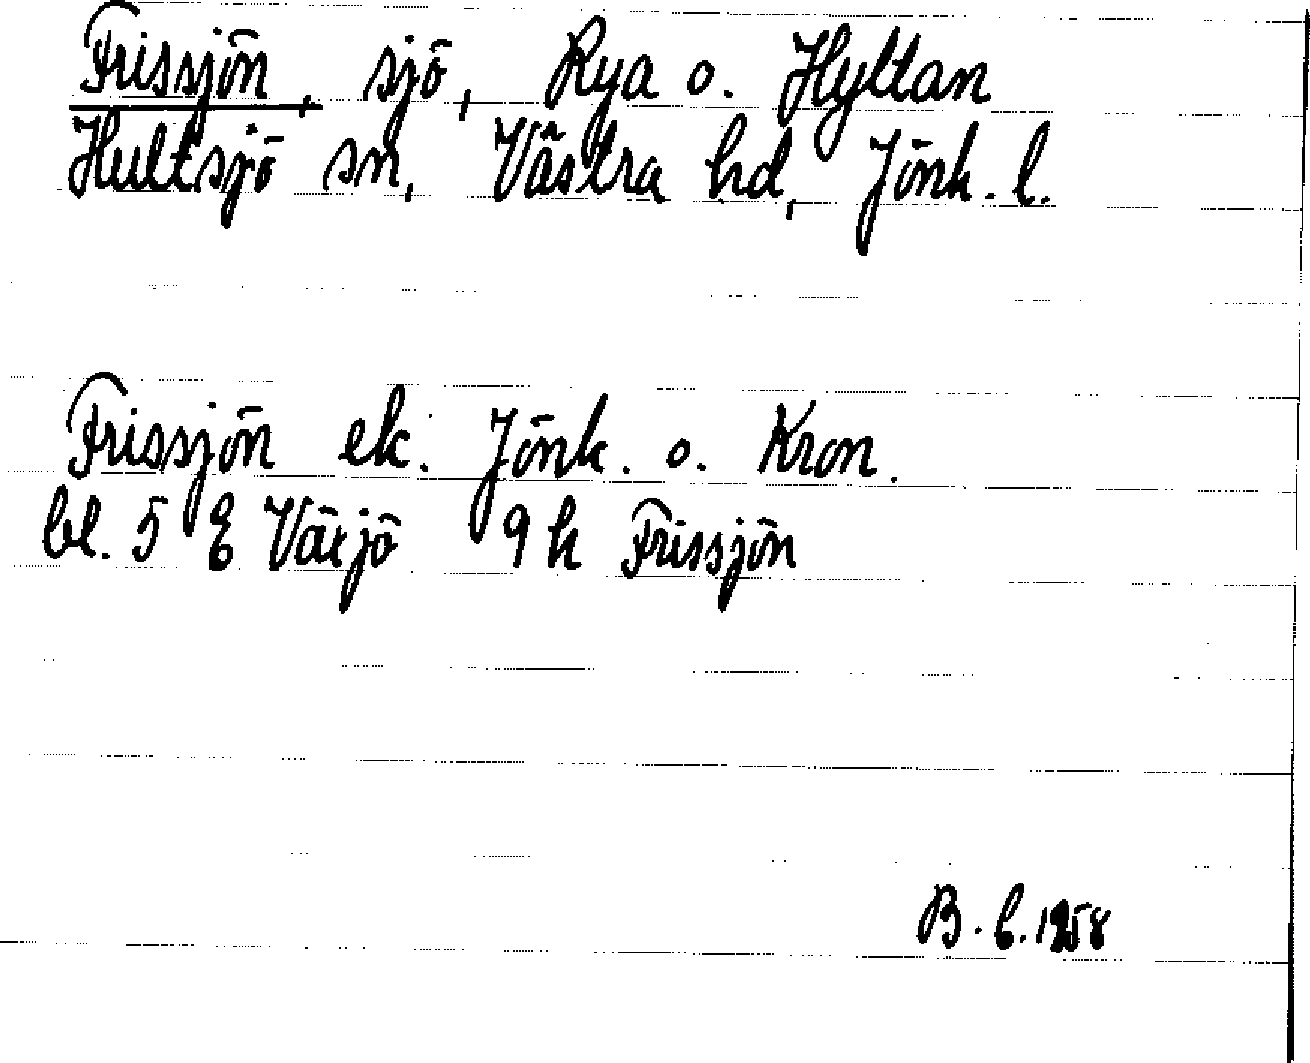 Frissjön, sjö, Rya o. Hyltan
Hultsjö sn, Västra hd, Jönk. l.
Frissjön ek. Jönk. o. Kron.
bl. 5 E Växjö 9 h Frissjön
B. b. 1958